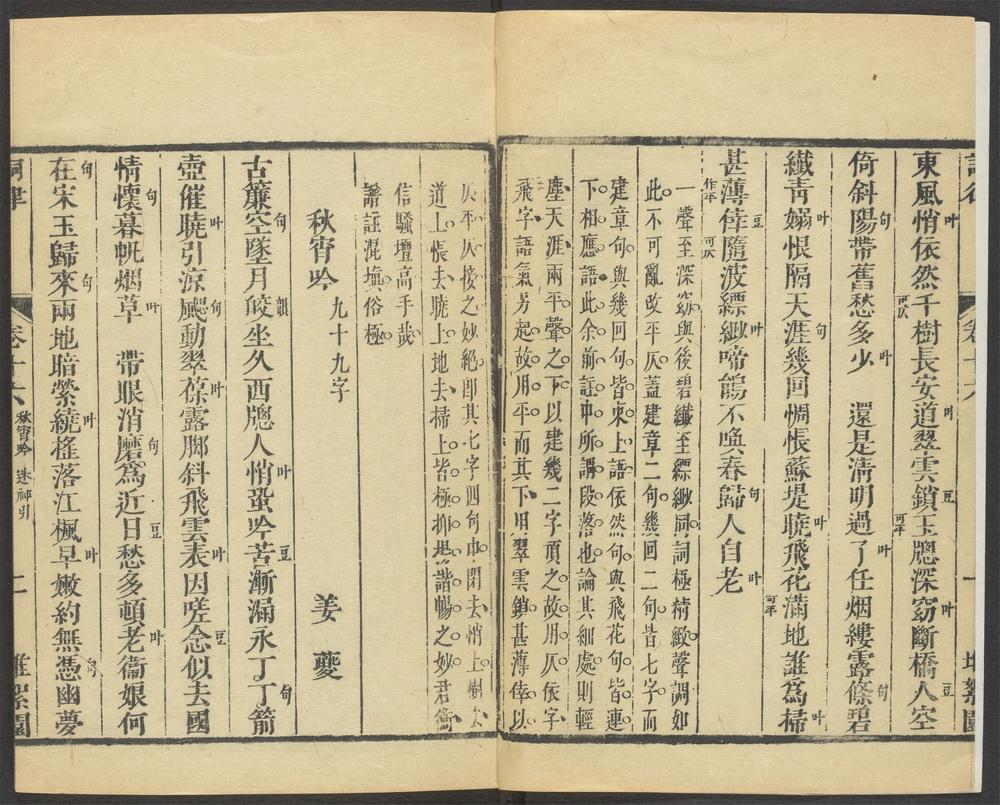 東風悄依然千樹長安道翠雲鎖玉牕深窈斷橋人空
倚斜陽帶舊愁多少　還是清明過了任烟縷露條碧
纖青嫋恨隔天涯幾回惆悵蘇堤曉飛花滿地誰爲掃
甚薄倖隨波縹緲啼鴿不喚春歸人自老
一聲至深窈與後碧纖至縹緲詞詞極精緻聲調如
此不可亂改平仄蓋建章二句幾回二句皆七字而
建章句與幾回句皆束上語依然句與飛花句皆連
下相應語此余前註中所謂段落也論其細處則輕
塵天涯兩平聲之下以建幾二字頂之故用仄依字
飛字語氣另起故用平而其下用翠雲鎖甚薄倖以
仄平仄接之妙絕即其七字四句中間去悄上樹去
道上悵去曉上地去掃上皆極抑揚諧暢之妙君衡
信騷壇高手哉
譜註混擬俗極
秋宵吟　九十九字　姜夔
古簾空墜月皎坐久西牕人悄蛩吟苦漸漏永丁丁箭
壺催曉引涼颸動翠葆露脚斜飛雲表因嗟念似去國
情懷暮帆烟草　帶眼消磨爲近日愁多頓老衞娘何
在宋玉歸來兩地暗縈繞摇落江楓早嫩約無憑幽夢
詞律　卷十六　秋宵吟　迷神引　二　堆絮園